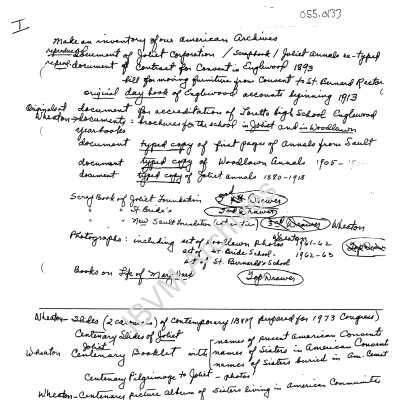 055.0133
I
make an inventory of our American Archives
document of Joliet Corporation / scrapbook / Joliet Annals re-typed
document of Contract for Convent in Englewood 1893
bill for moving furniture from Convent to St. Bernard Rectory
original day book of Englewood accounts beginning 1913
document for accreditation of Loretto high School Englewood
Wheaton → documents: brochures for the school in Joliet and in Woodlawn
yearbooks
document typed copy of first pages of Annals from Sault
document typed copy of Woodlawn Annals 1905-
document typed copy of Joliet annals 1880-1918
Scrap Book of Joliet Foundation Drawer
" " St Bride's 2nd Drawer
" " New Sault Foundation 2nd Drawer Wheaton
Photographs: including set of Woodlawn photos Wheaton 1961-62 Top Drawer
set of St. Bride School 1962-63
set of St. Bernard's School
Books on Life of Mary Ward Top Drawer
Wheaton - Slides (2 ) of Contemporary IBVM prepared for 1973 Congress)
Centenary Slides of Joliet
Joliet names of present American Convents
Wheaton Centenary Booklet with names of Sisters in American Convents
names of Sisters buried in Am. Cemet
Centenary Pilgrimage to Joliet - photos
Wheaton - Centenary picture album of Sisters living in American Communities
IBVM Archives